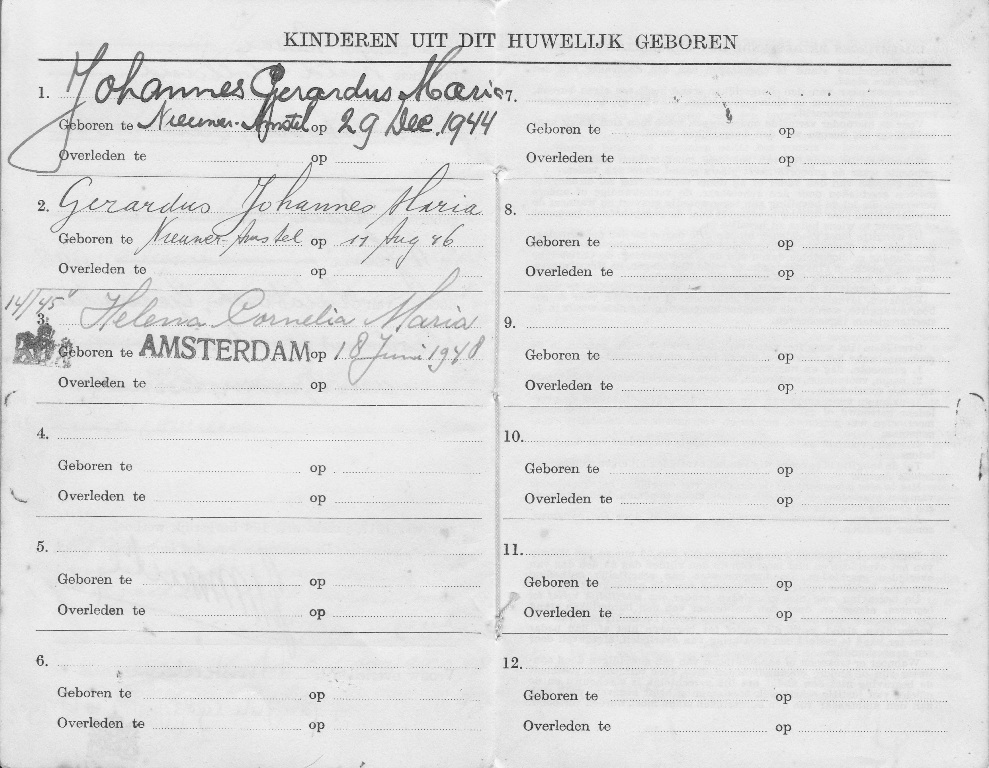 KINDEREN UIT DIT HUWELIJK GEBOREN
1. Johannes Gerardus Maria
Geboren te Nieuwer-Amstel op 29 Dec. 1944
Overleden te op
2. Gerardus Johannes Maria
Geboren te Nieuwer-Amstel op 11 Aug 46
Overleden te op
3. Helena Cornelia Maria
Geboren te AMSTERDAM op 18 Juni 1948
Overleden te op
4.
Geboren te op
Overleden te op
5.
Geboren te op
Overleden te op
6.
Geboren te op
Overleden te op
7.
Geboren te op
Overleden te op
8.
Geboren te op
Overleden te op
9.
Geboren te op
Overleden te op
10.
Geboren te op
Overleden te op
11.
Geboren te op
Overleden te op
12.
Geboren te op
Overleden te op